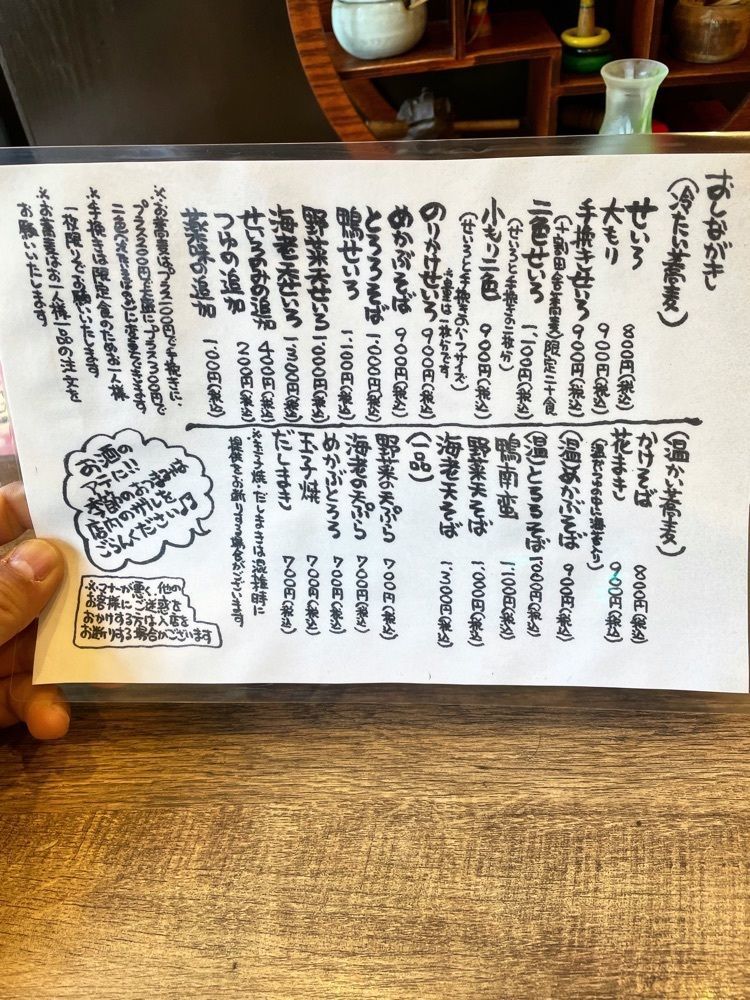 おしながき
(冷たい蕎麦)
せいろ 800円(税込)
大もり 900円(税込)
手挽きせいろ 900円(税込)
(十割田舎蕎麦)限定二十食
二色せいろ 1,100円(税込)
(せいろと手挽きの二枚分)
小もり二色 900円(税込)
(せいろと手挽きのハーフサイズ)
※量は一枚分です
のりかけせいろ 900円(税込)
めかぶそば 900円(税込)
とろろそば 1,000円(税込)
鴨せいろ 1,100円(税込)
野菜天せいろ 1,000円(税込)
海老天せいろ 1,300円(税込)
せいろのみの追加 400円(税込)
つゆの追加 200円(税込)
薬味の追加 100円(税込)
※お蕎麦はプラス100円で手挽きに、
プラス200円で大盛に、プラス300円で
二色(大もりは不可)に変更できます
※手挽きは限定食のためお一人様
一枚限りでお願いいたします
※お蕎麦はお一人様一品の注文を
お願いいたします
(温かい蕎麦)
かけそば 800円(税込)
花まき 900円(税込)
(温たいつゆに海苔入り)
(温)めかぶそば 900円(税込)
(温)とろろそば 1,000円(税込)
鴨南蛮 1,100円(税込)
野菜天そば 1,000円(税込)
海老天そば 1,300円(税込)
(一品)
野菜の天ぷら 700円(税込)
海老の天ぷら 700円(税込)
めかぶとろろ 700円(税込)
玉子焼 700円(税込)
だしまき 700円(税込)
※玉子焼・だしまきは混雑時に
提供をお断りする場合がございます
お酒の
アテに!!
季節のおつまみは
店内のザルを
ごらんください♪
※マナーが悪く、他の
お客様にご迷惑を
おかけする方は入店を
お断りする場合がございます